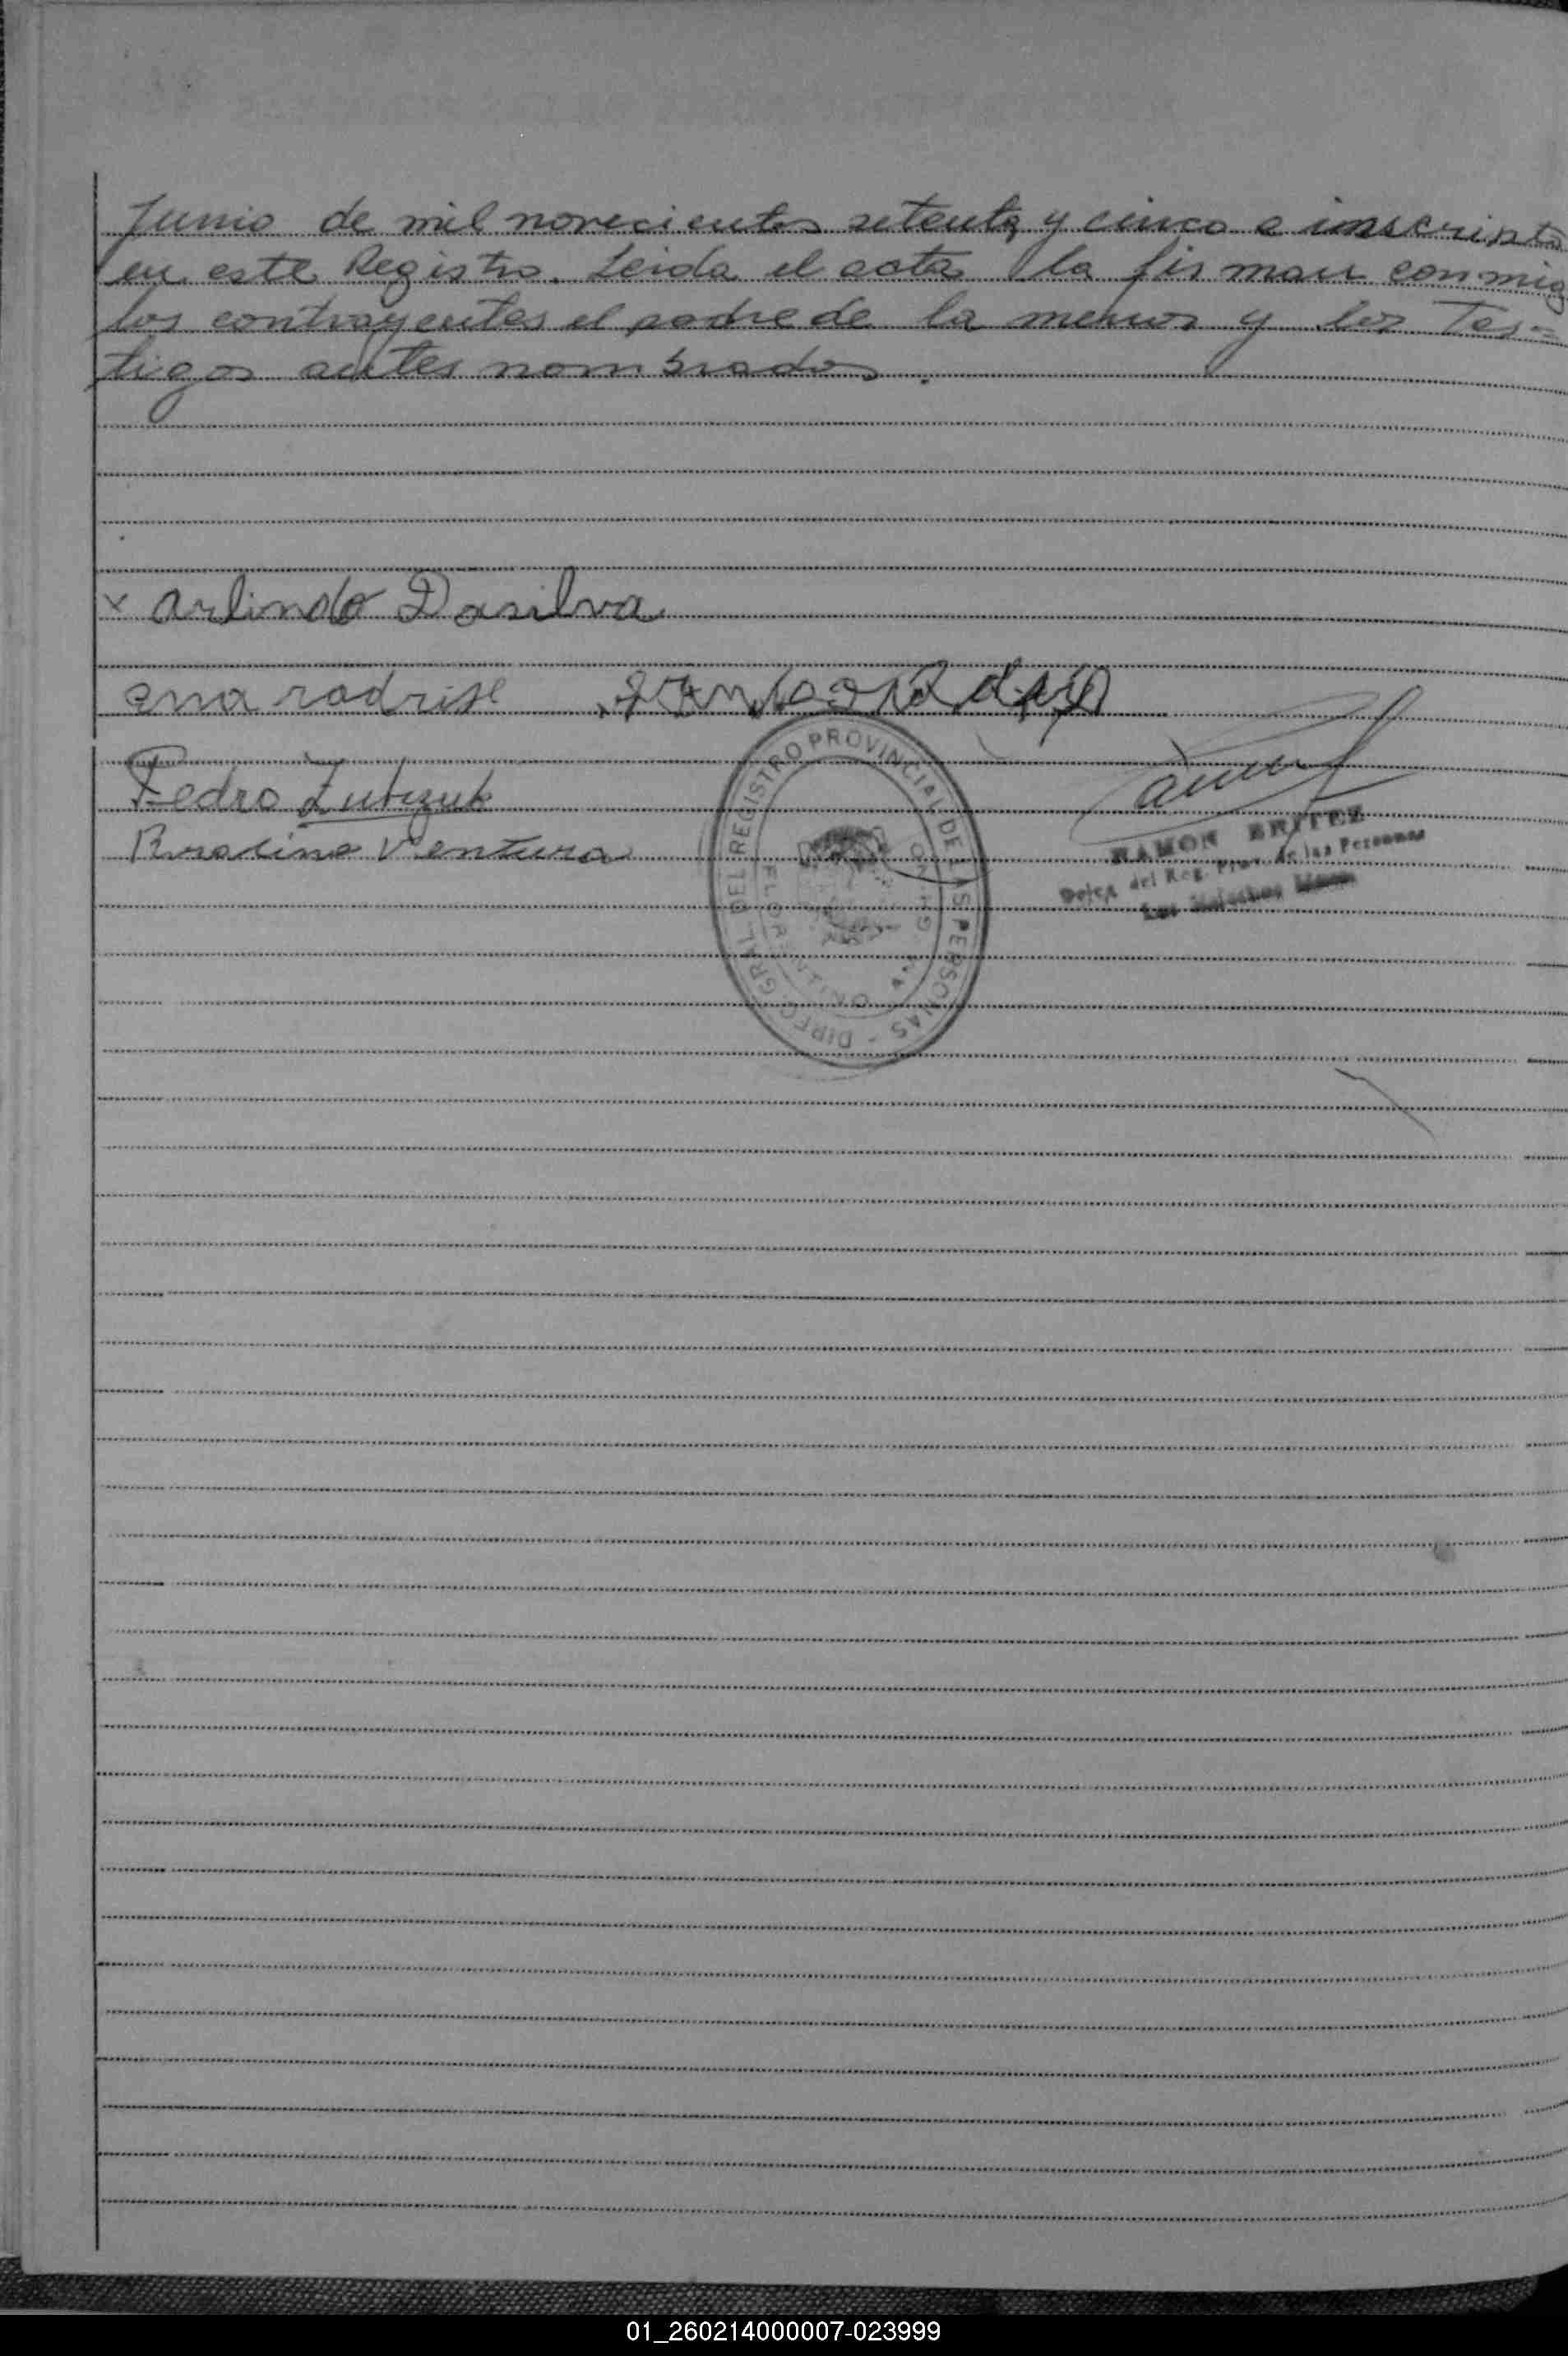 Junio de mil novecientos setenta y cinco e inscripta
en este Registro. Leida el acta la firman conmig
los contrayentes el padre de la menor y los Tes=
tigos antes nombrados.
x Arlindo Dasilva
ana rodrise
Pedro Zubczuk
Ventura
DIREC. GRAL. DEL REGISTRO PROVINCIAL DE LAS PERSONAS -
RAMON BRITEZ
Deleg. del Reg. Prov. de las Personas
01_260214000007-023999